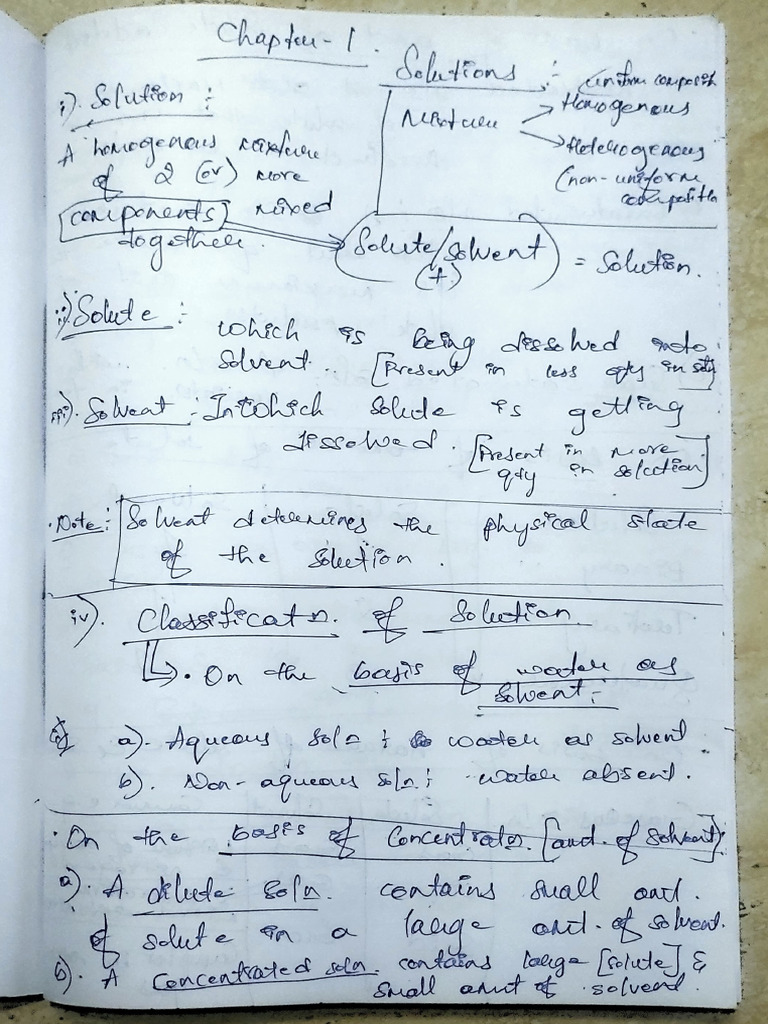 Chapter-1.
Solutions :-
i). Solution :
A homogenous mixture
of 2 (or) more
components mixed
together.
(uniform composit
Mixture → Homogenous
→ Heterogenous
(non-uniform
composition
Solute/solvent = Solution.
(+)
ii) Solute :- which is being dissolved into
solvent. [Present in less qty in
iii). Solvent :- In which solute is getting
dissolved. [Present in more
qty in solution]
Note: Solvent determines the physical state
of the solution.
iv). Classificatn. of Solution
• On the basis of water as
solvent:-
a). Aqueous soln : water as solvent.
b). Non-aqueous soln; water absent.
• On the basis of Concentratn. [amt. of solvent]
a). A dilute soln. contains small amt.
of solute in a large amt. of solvent.
b). A concentrated soln. contains large [solute] &
small amt of solvent.